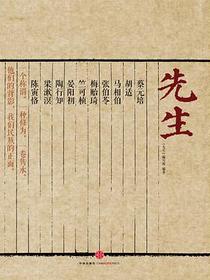 先生
《先生》编写组 编著
蔡元培
胡适
马相伯
张伯苓
梅贻琦
竺可桢
晏阳初
陶行知
梁漱溟
陈寅恪
一个称谓,一种修为,一卷隽永,
他们的背影,我们民族的正面。